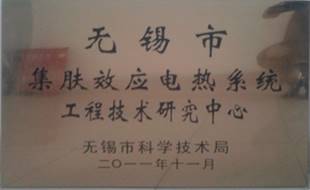 无锡市
集肤效应电热系统
工程技术研究中心
无锡市科学技术局
二〇一一年十一月